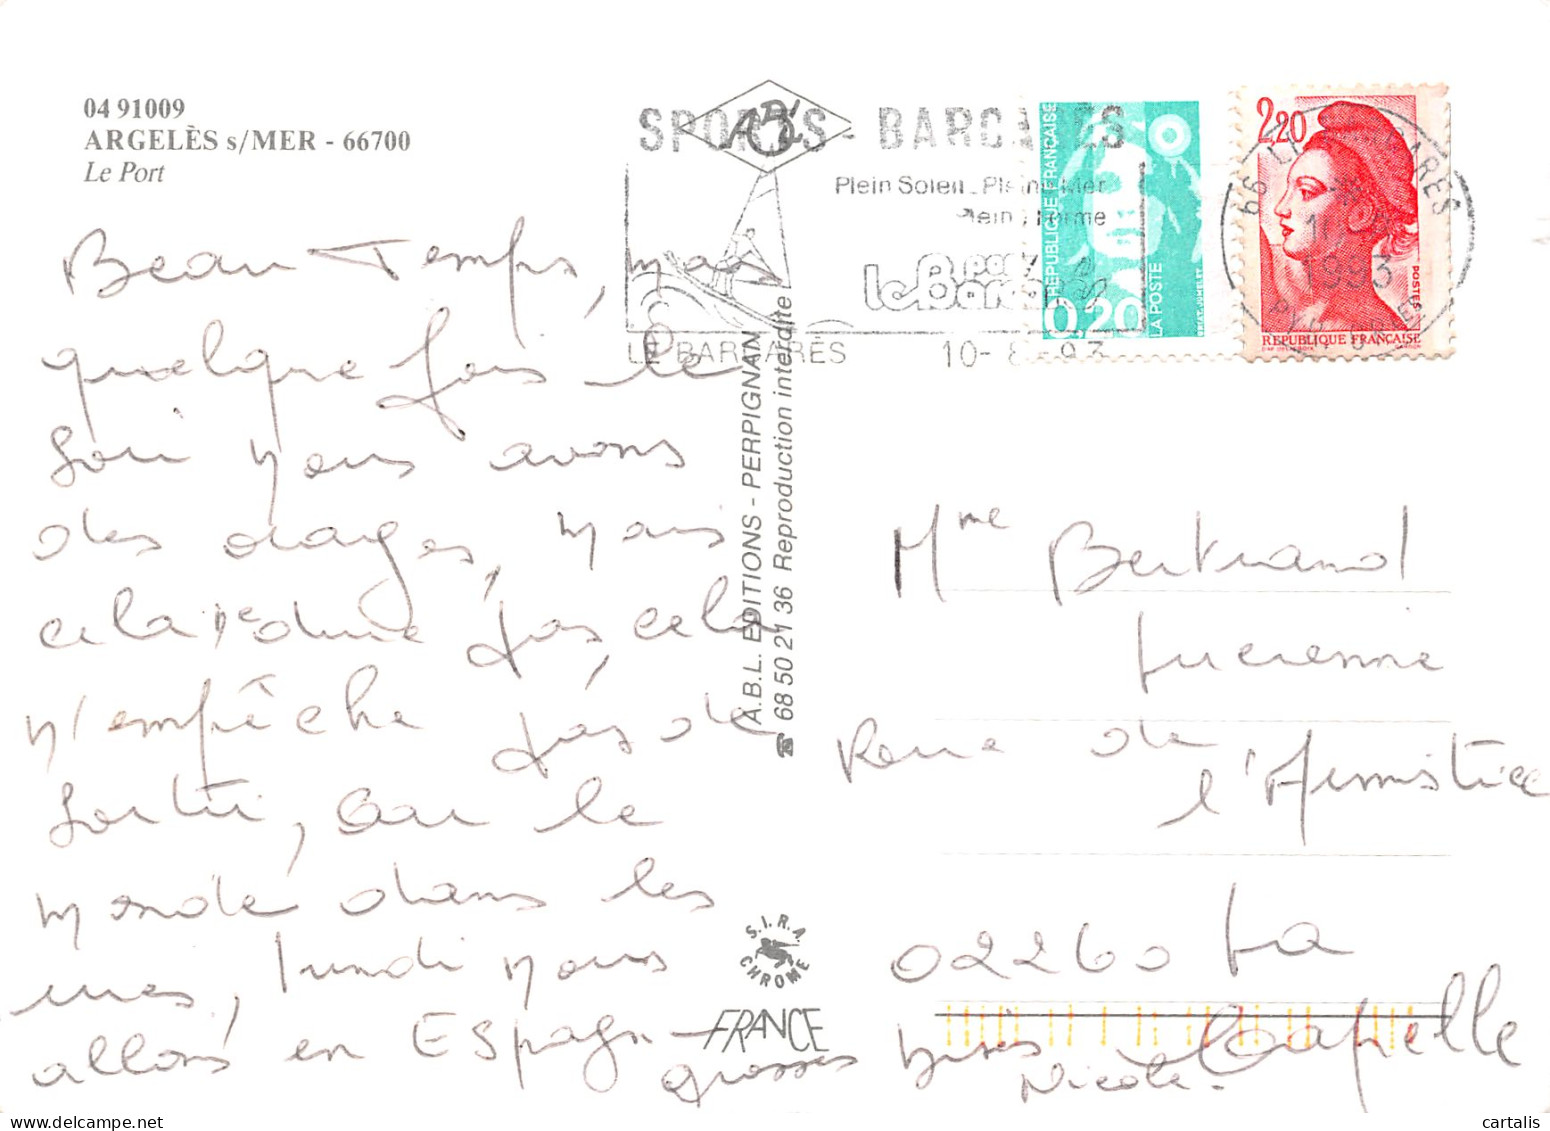 04 91009
ARGELÈS s/MER - 66700
Le Port
Beau Temps, mais
quelque fois le
soir nous avons
des orages, mais
cela ne dure pas, cela
n'empêche pas de
sortir, car le
monde dans les
rues, lundi nous
allons en Espagne
grosses bises
Nicole.
A.B.L. EDITIONS - PERPIGNAN
☎ 68 50 21 36 Reproduction interdite
S.I.R.A.
CHROME
FRANCE
SPORTS - BARCARÈS
Plein Soleil - Pleine Mer
Pleine Forme
port
le Barcarès
LE BARCARÈS 10-8-93
ABL
RÉPUBLIQUE FRANÇAISE
0,20
LA POSTE
2,20
POSTES
RÉPUBLIQUE FRANÇAISE
66 LE BARCARÈS
1993
Mme Bertrand
Lucienne
Rue de
l'Armistice
02260 La
Capelle
cartalis